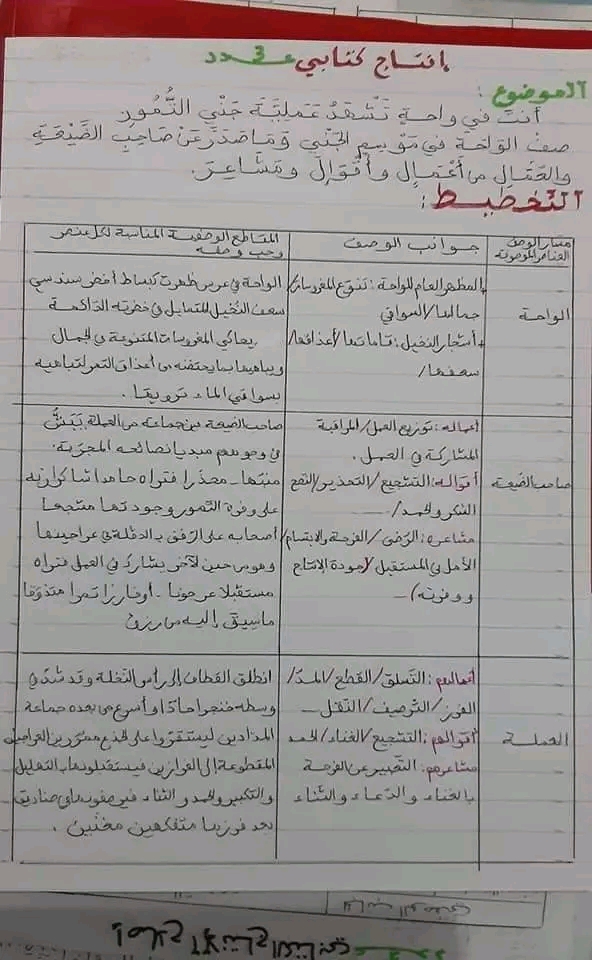 إنتاج كتابي عدد 3
الموضوع:
أنتَ في واحةٍ تَشْهَدُ عَمَلِيَّةَ جَنْيِ التُّمُورِ
صف الواحة في مَوْسِمِ الجَنْيِ وَمَا صَدَرَ عَنْ صَاحِبِ الضَّيْعَةِ
والعُمَّالِ من أَعْمَالٍ وأَقْوَالٍ ومَشَاعِرَ.
التخطيط:
مسار الوصف
العناصر الموصوفة
جوانب الوصف
المقاطع الوصفية المناسبة لكل عنصر
وجب وصفه
الواحة
+ المظهر العام للواحة: تنوع المغروسات/
جمالها/السواقي
+ أشجار النخيل: قاماتها/أعذاقها/
سعفها/
الواحة في عرس ظهرت كبساط أخضر سندسي
سعف النخيل المتمايل في خضرته الدائمة
يحاكي المغروسات المتنوعة في الجمال
ويباهيها بما يحتضنه من أعذاق التمر لتباهيه
بسواقي الماء ترويها.
صاحب الضيعة
أعماله: توزيع العمل/المراقبة
المشاركة في العمل.
أقواله: التشجيع/التحذير/النصح
الشكر والحمد/...
مشاعره: الرضى/الفرحة والابتسام/
الأمل في المستقبل (جودة الإنتاج
ووفرته)...
صاحب الضيعة بين جماعته من العملة يَبَشُّ
في وجوههم مبديا نصائحه المجرّبة.
منبّها - محذرا فتراه حامدا شاكرا ربه
على وفرة التمور وجودتها مشجعا
أصحابه على الرفق بالدقلة في عراجينها
وهو من حين لآخر يشارك في العمل فتراه
مستقبلا عرجونا - أو فارزا تمرا متذوقا
ما سيق إليه من رزق
العملة
أعمالهم: التسلق/القطع/المدّ/
الفرز/الترصيف/النقل...
أقوالهم: التشجيع/الغناء/الحمد
مشاعرهم: التعبير عن الفرحة
بالغناء والدعاء والثناء
انطلق القطاف إلى رأس النخلة وقد شدّ في
وسطه خنجرا حادّا وأسرع من بعده جماعة
المدّادين ليستقرّوا على الجذع ممرّرين العراجين
المقطوعة إلى الفرازين فيستقبلونها بالتهليل
والتكبير والحمد والثناء فيرصفونها في صناديق
بعد فرزها متفكهين مغنّين.
إصلاح الإنتاج الكتابي